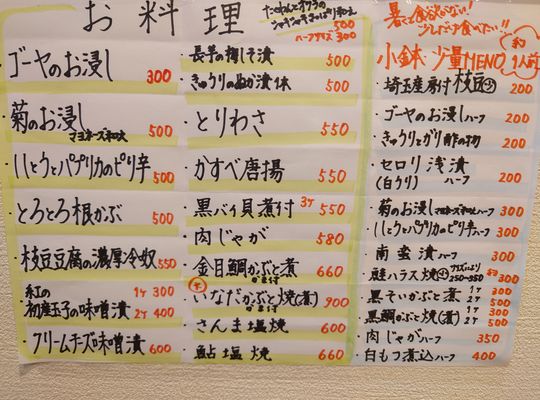 お料理
たくわんとオクラの
シャキシャキネバネバ和え
500
ハーフサイズ 300
ゴーヤのお浸し 300
菊のお浸し
マヨネーズ和え 500
ししとうとパプリカのピリ辛 500
とろとろ根かぶ 500
枝豆豆腐の濃厚冷奴 550
紅の
初産玉子の味噌漬
1ケ 300
2ケ 400
クリームチーズ味噌漬 600
・長芋の梅しそ漬 500
・きゅうりのぬか漬け 500
・とりわさ 550
・かすべ唐揚 550
・黒バイ貝煮付 3ケ 550
・肉じゃが 580
・金目鯛かぶと煮 660
・いなだかぶと焼(煮) 900
・さんま塩焼 600
・鮎塩焼 660
暑くて食欲がない!
少しずつ食べたい!!
小鉢本 少量MENO 約1人前
・埼玉産房付枝豆 200
・ゴーヤのお浸しハーフ 200
・きゅうりとガリ酢の物 200
・セロリ浅漬
(白ウリ) ハーフ 200
・菊のお浸しマヨネーズ和えハーフ 300
・ししとうとパプリカのピリ辛ハーフ 300
・南蛮漬ハーフ 300
・鮭ハラス焼 サイズにより 250~350 約300
・黒そいかぶと煮 1ケ 300
2ケ 500
・黒鯛かぶと焼(煮) 1ケ 300
2ケ 500
・肉じゃがハーフ 350
・白もつ煮込ハーフ 400